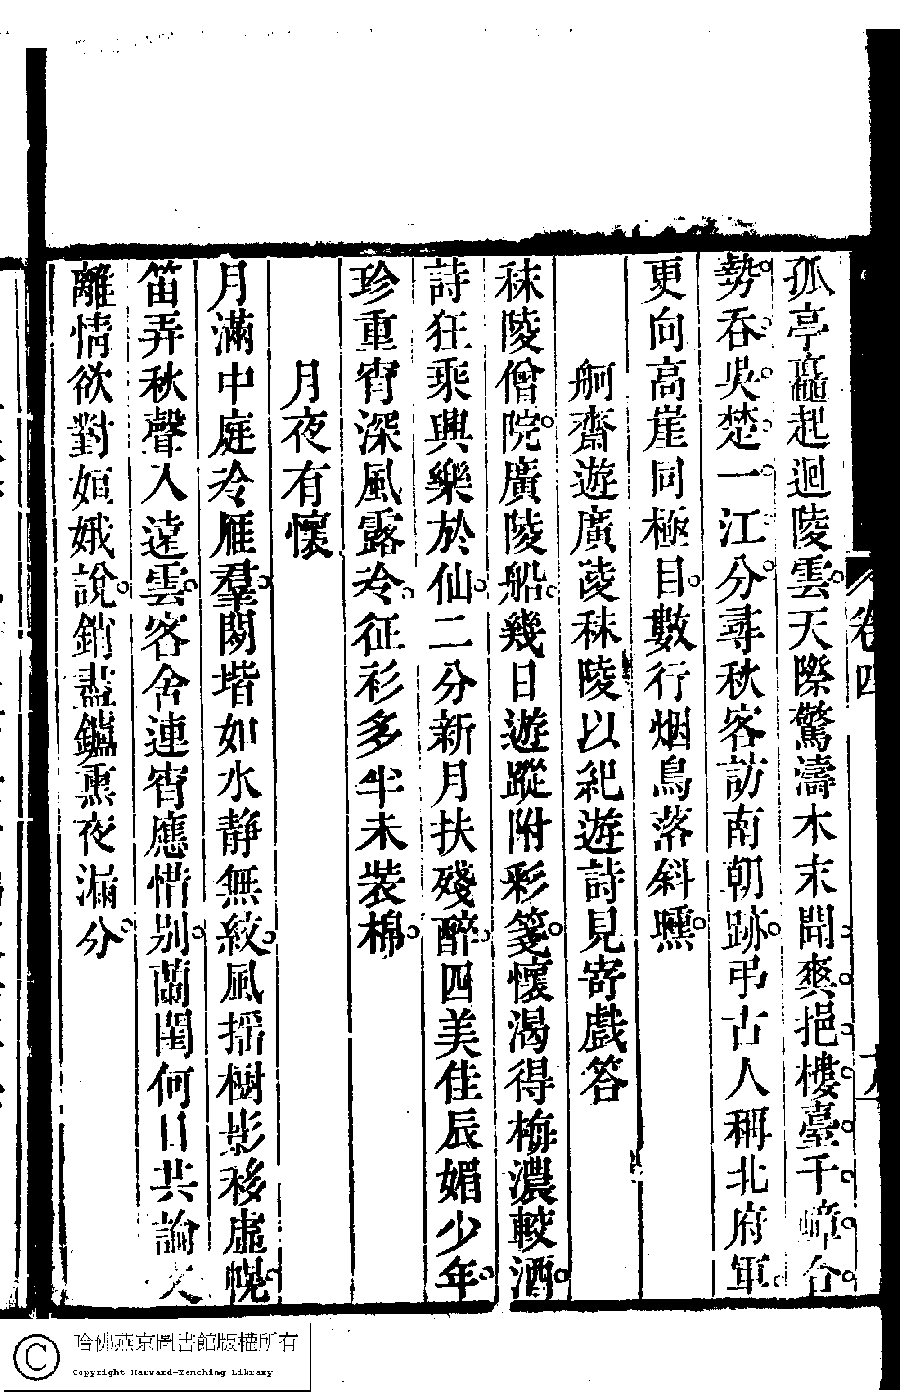 孤亭矗起迴陵雲天際驚濤木末聞爽挹樓臺千嶂合
勢吞吳楚一江分尋秋客訪南朝跡弔古人稱北府軍
更向高崖同極目數行烟鳥落斜曛
舸齋遊廣陵秣陵以紀遊詩見寄戲答
秣陵僧院廣陵船幾日遊蹤附彩箋懷渴得梅濃較酒
詩狂乘興樂於仙二分新月扶殘醉四美佳辰媚少年
珍重宵深風露冷征衫多半未裝棉
月夜有懷
月滿中庭冷雁羣閑堦如水靜無紋風搖樹影移虛幌
笛弄秋聲入遠雲客舍連宵應惜别蘭閨何日共論文
離情欲對姮娥說銷盡鑪熏夜漏分
卷四
哈佛燕京圖書館版權所有
Copyright Harvard-Yenching Library